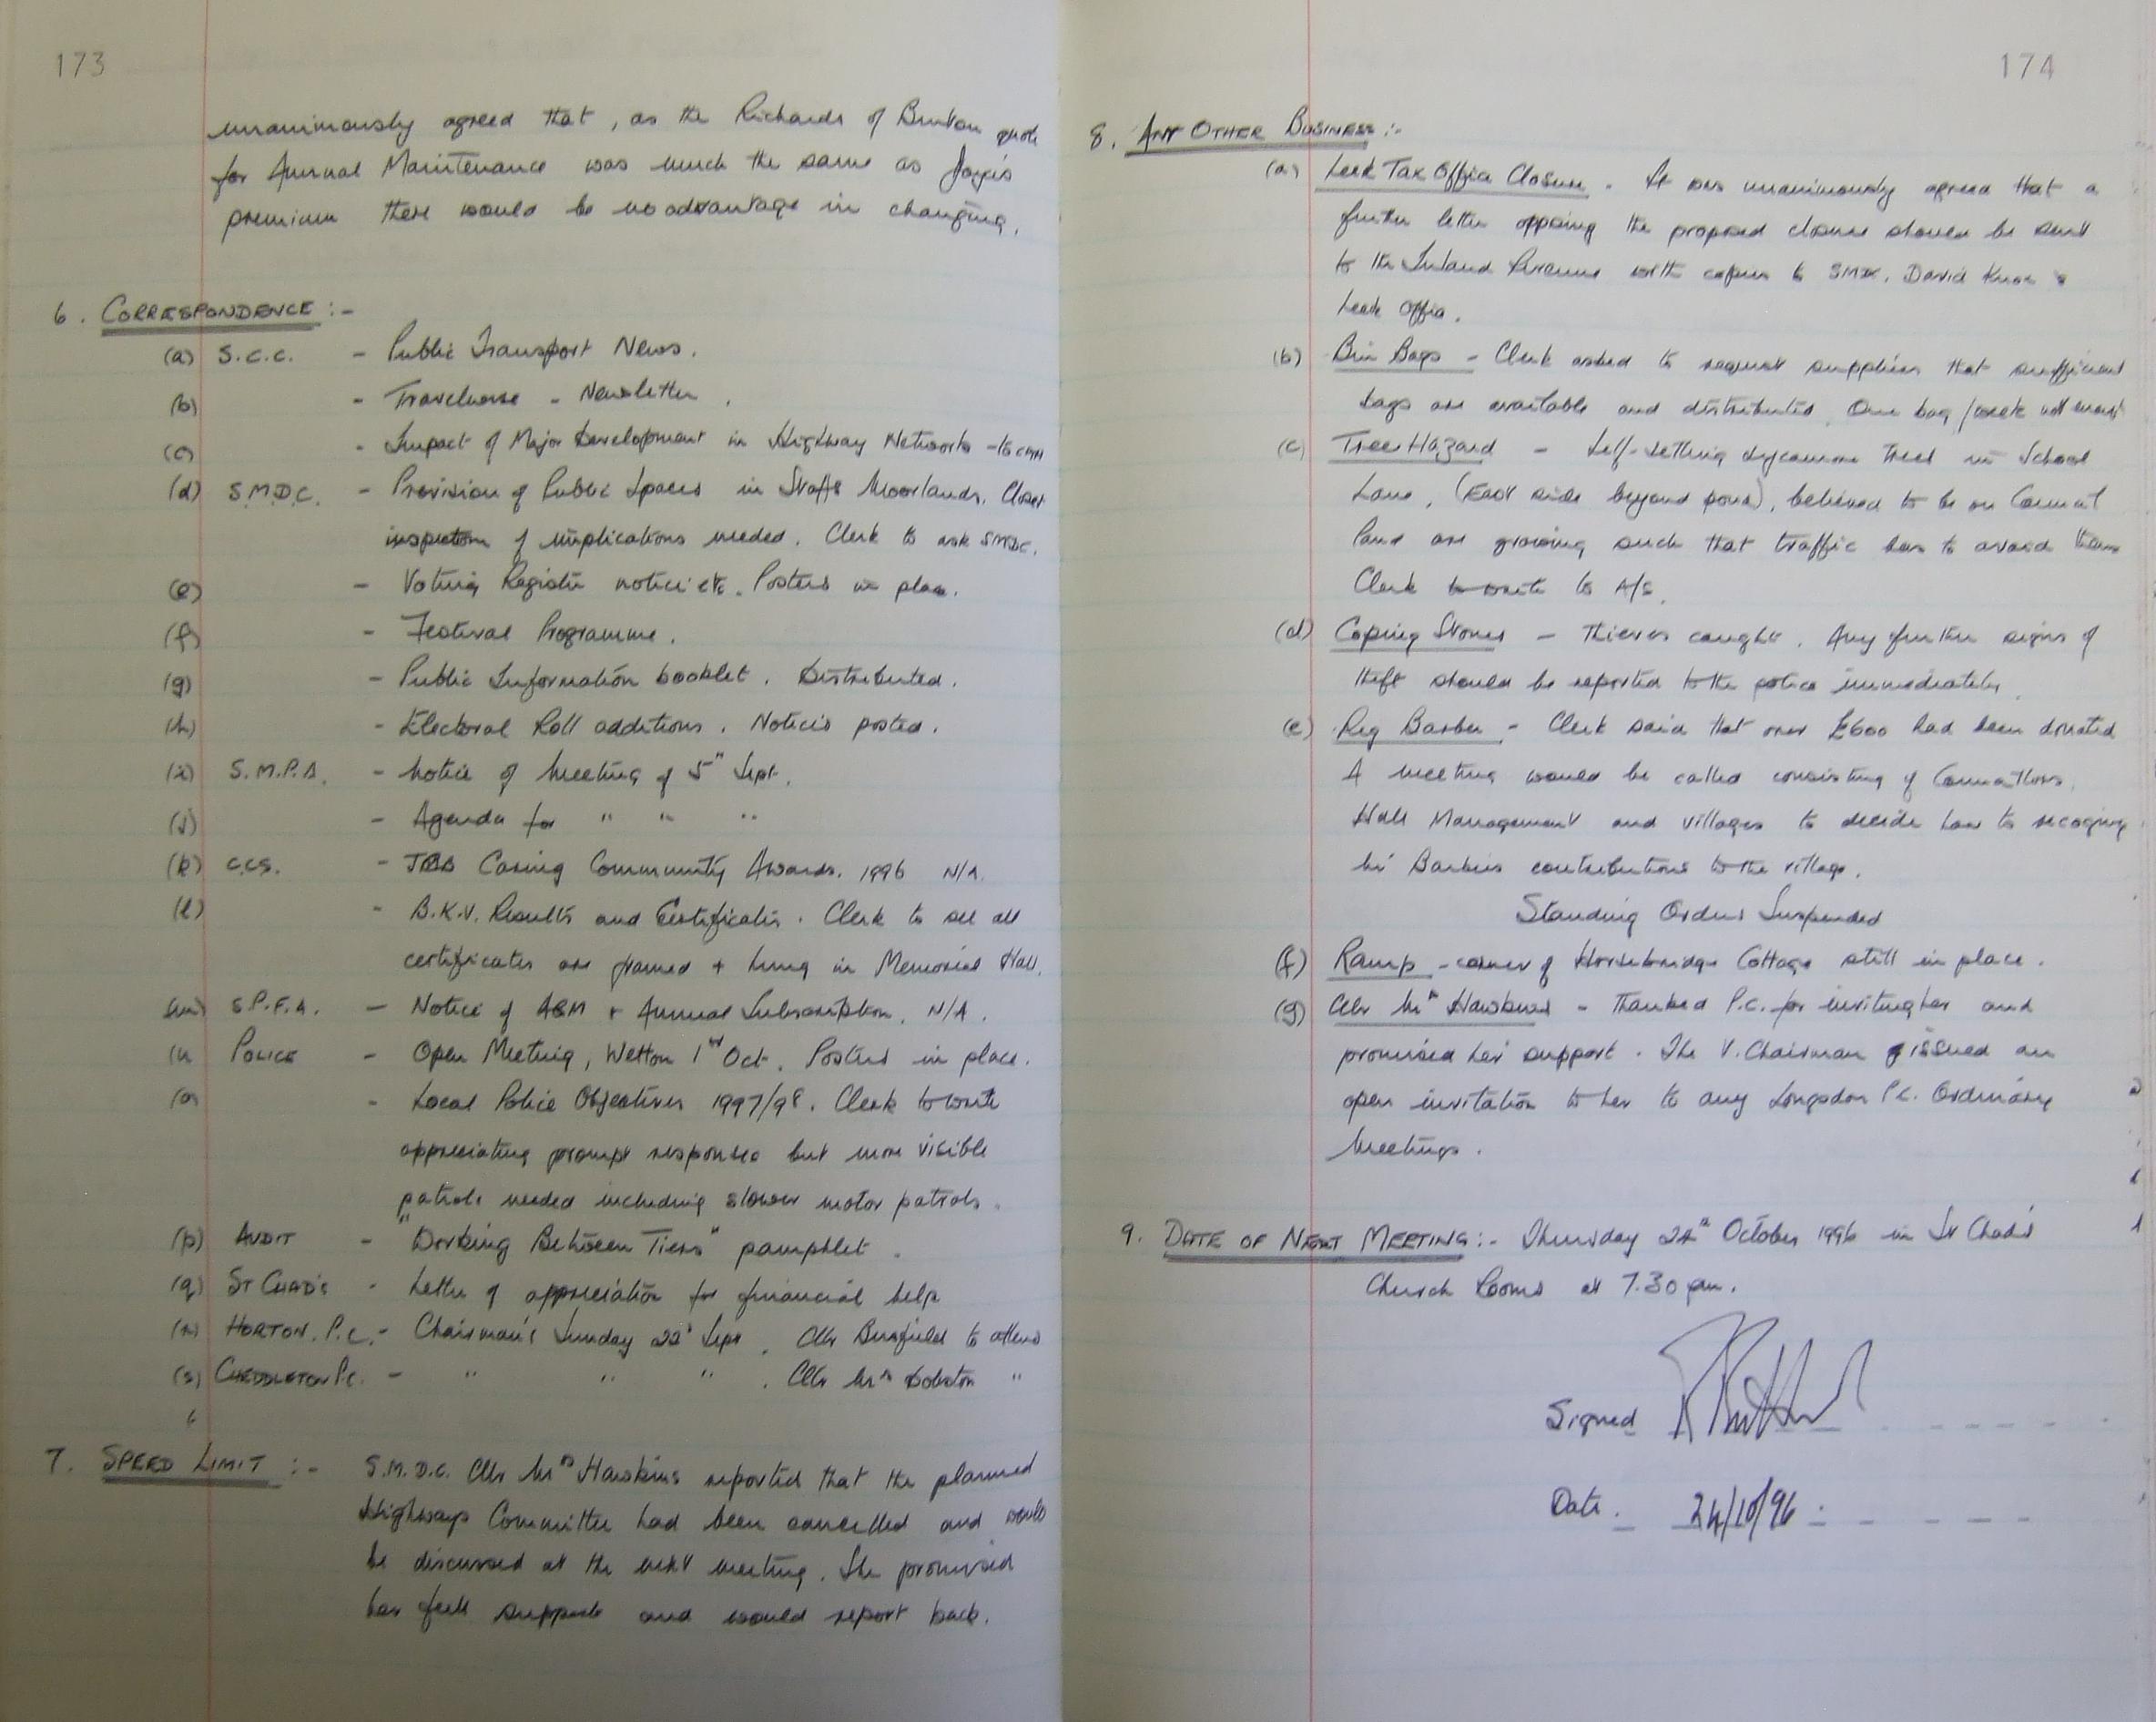 173
unanimously agreed that, as the Richards of Burton quote
for Annual Maintenance was much the same as Joyce's
premium there would be no advantage in changing.
6. CORRESPONDENCE :-
(a) S.C.C. - Public Transport News.
(b) - Travelwise - Newsletter.
(c) - Impact of Major Development in Highway Networks - to
(d) S.M.D.C. - Provision of Public Spaces in Staffs Moorlands. Closer
inspection of implications needed. Clerk to ask SMDC.
(e) - Voting Register notice etc. Posters in place.
(f) - Festival Programme.
(g) - Public Information booklet. Distributed.
(h) - Electoral Roll additions. Notices posted.
(i) S.M.P.A. - Notice of Meeting of 5th Sept.
(j) - Agenda for " " "
(k) C.C.S. - Caring Community Awards. 1996 N/A.
(l) - B.K.V. Results and Certificates. Clerk to see all
certificates are framed + hung in Memorial Hall.
(m) S.P.F.A. - Notice of AGM + Annual Subscription. N/A.
(n POLICE - Open Meeting, Wetton 1st Oct. Posters in place.
(o) - Local Police Objectives 1997/98. Clerk to write
appreciating prompt responses but more visible
patrols needed including slower motor patrols.
(p) AUDIT - "Working Between Tiers" pamphlet.
(q) ST CHAD'S - Letter of appreciation for financial help
(r) HORTON. P.C. - Chairman's Sunday 22nd Sept. Cllr Burgfield to attend
(s) CHEDDLETON P.C. - " " " . Cllr Mrs Dobston "
7. SPEED LIMIT :- S.M.D.C. Cllr Mrs Hawkins reported that the planned
Highways Committee had been cancelled and would
be discussed at the next meeting. She promised
her full support and would report back.
174
8. ANY OTHER BUSINESS :-
(a) Leek Tax Office Closure. It was unanimously agreed that a
further letter opposing the proposed closure should be sent
to the Inland Revenue with copies to SMDC, David Knox &
Leek Office.
(b) Bin Bags - Clerk asked to request suppliers that sufficient
bags are available and distributed. One bag/week not enough
(c) Tree Hazard - Self-setting sycamore trees in School
Lane, (East side beyond pond), believed to be on Council
land are growing such that traffic has to avoid them
Clerk to write to A/S.
(d) Coping Stones - Thieves caught. Any further signs of
theft should be reported to the police immediately.
(e) Reg Barber - Clerk said that over £600 had been donated
A meeting would be called consisting of Councillors,
Hall Management and villages to decide how to recognise
Mr Barbers contributions to the village.
Standing Orders Suspended
(f) Ramp - corner of Horsebridge Cottage still in place.
(g) Cllr Mrs Hawkins - Thanked P.C. for inviting her and
promised her support. The V. Chairman issued an
open invitation to her to any Longsdon P.C. Ordinary
Meetings.
9. DATE OF NEXT MEETING :- Thursday 24th October 1996 in St Chad's
Church Rooms at 7.30 pm.
Signed
Date. 24/10/96